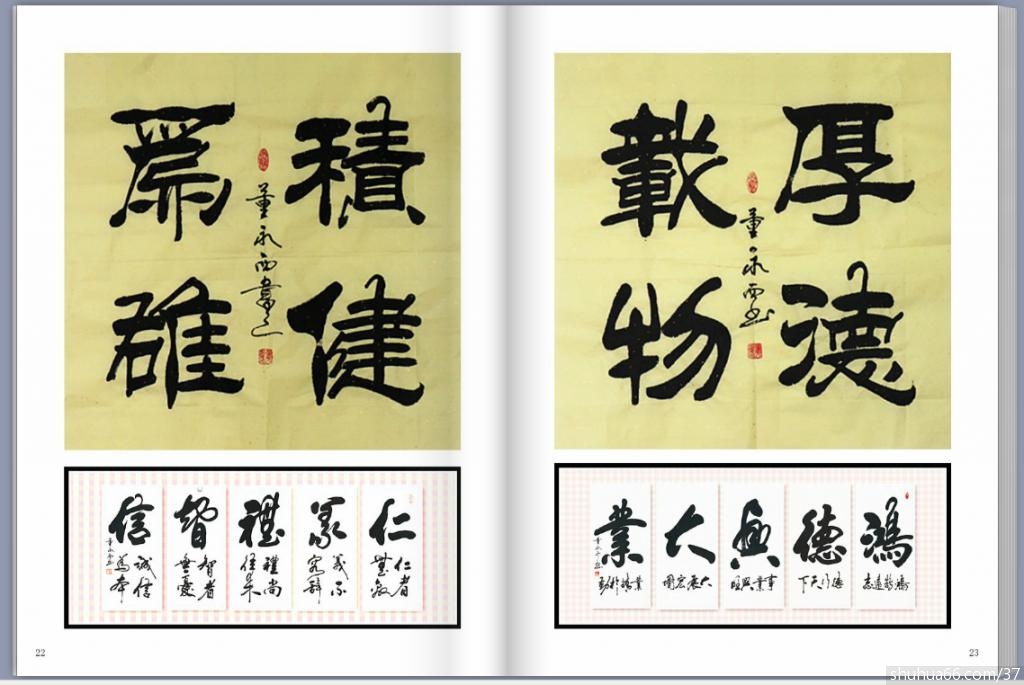 積健
爲雄
董永西書
仁
仁者
無敵
義
義不
容辭
禮
禮尚
往來
智
智者
無憂
信
誠信
為本
22
厚德
載物
董永西書
鴻
德
德行天下
興
事業興旺
大
大展宏圖
業
業精於勤
23
shuhua66.com/37